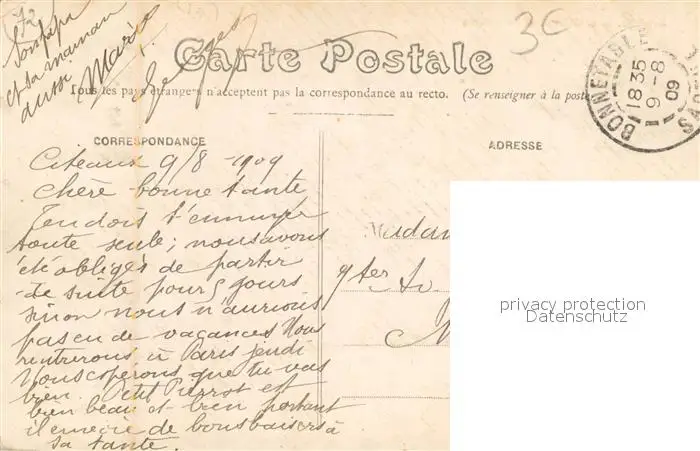 72
3€
Son papa
et sa maman
aussi Marie
Georges
Carte Postale
Tous les pays étrangers n'acceptent pas la correspondance au recto. (Se renseigner à la poste
BONNETABLE
18 35
9 -8
09
SA
CORRESPONDANCE
ADRESSE
Citeaux 9/8 - 1909
Chère bonne tante
Tu dois t'ennuyer
toute seule; nous avons
été obligés de partir
de suite pour 8 jours
sinon nous n'aurions
pas eu de vacances Nous
rentrerons à Paris jeudi
Nous esperons que tu vas
bien. Petit Pierrot est
bien beau et bien portant
il envoie de bons baisers à
sa tante.
Madam
privacy protection
Datenschutz